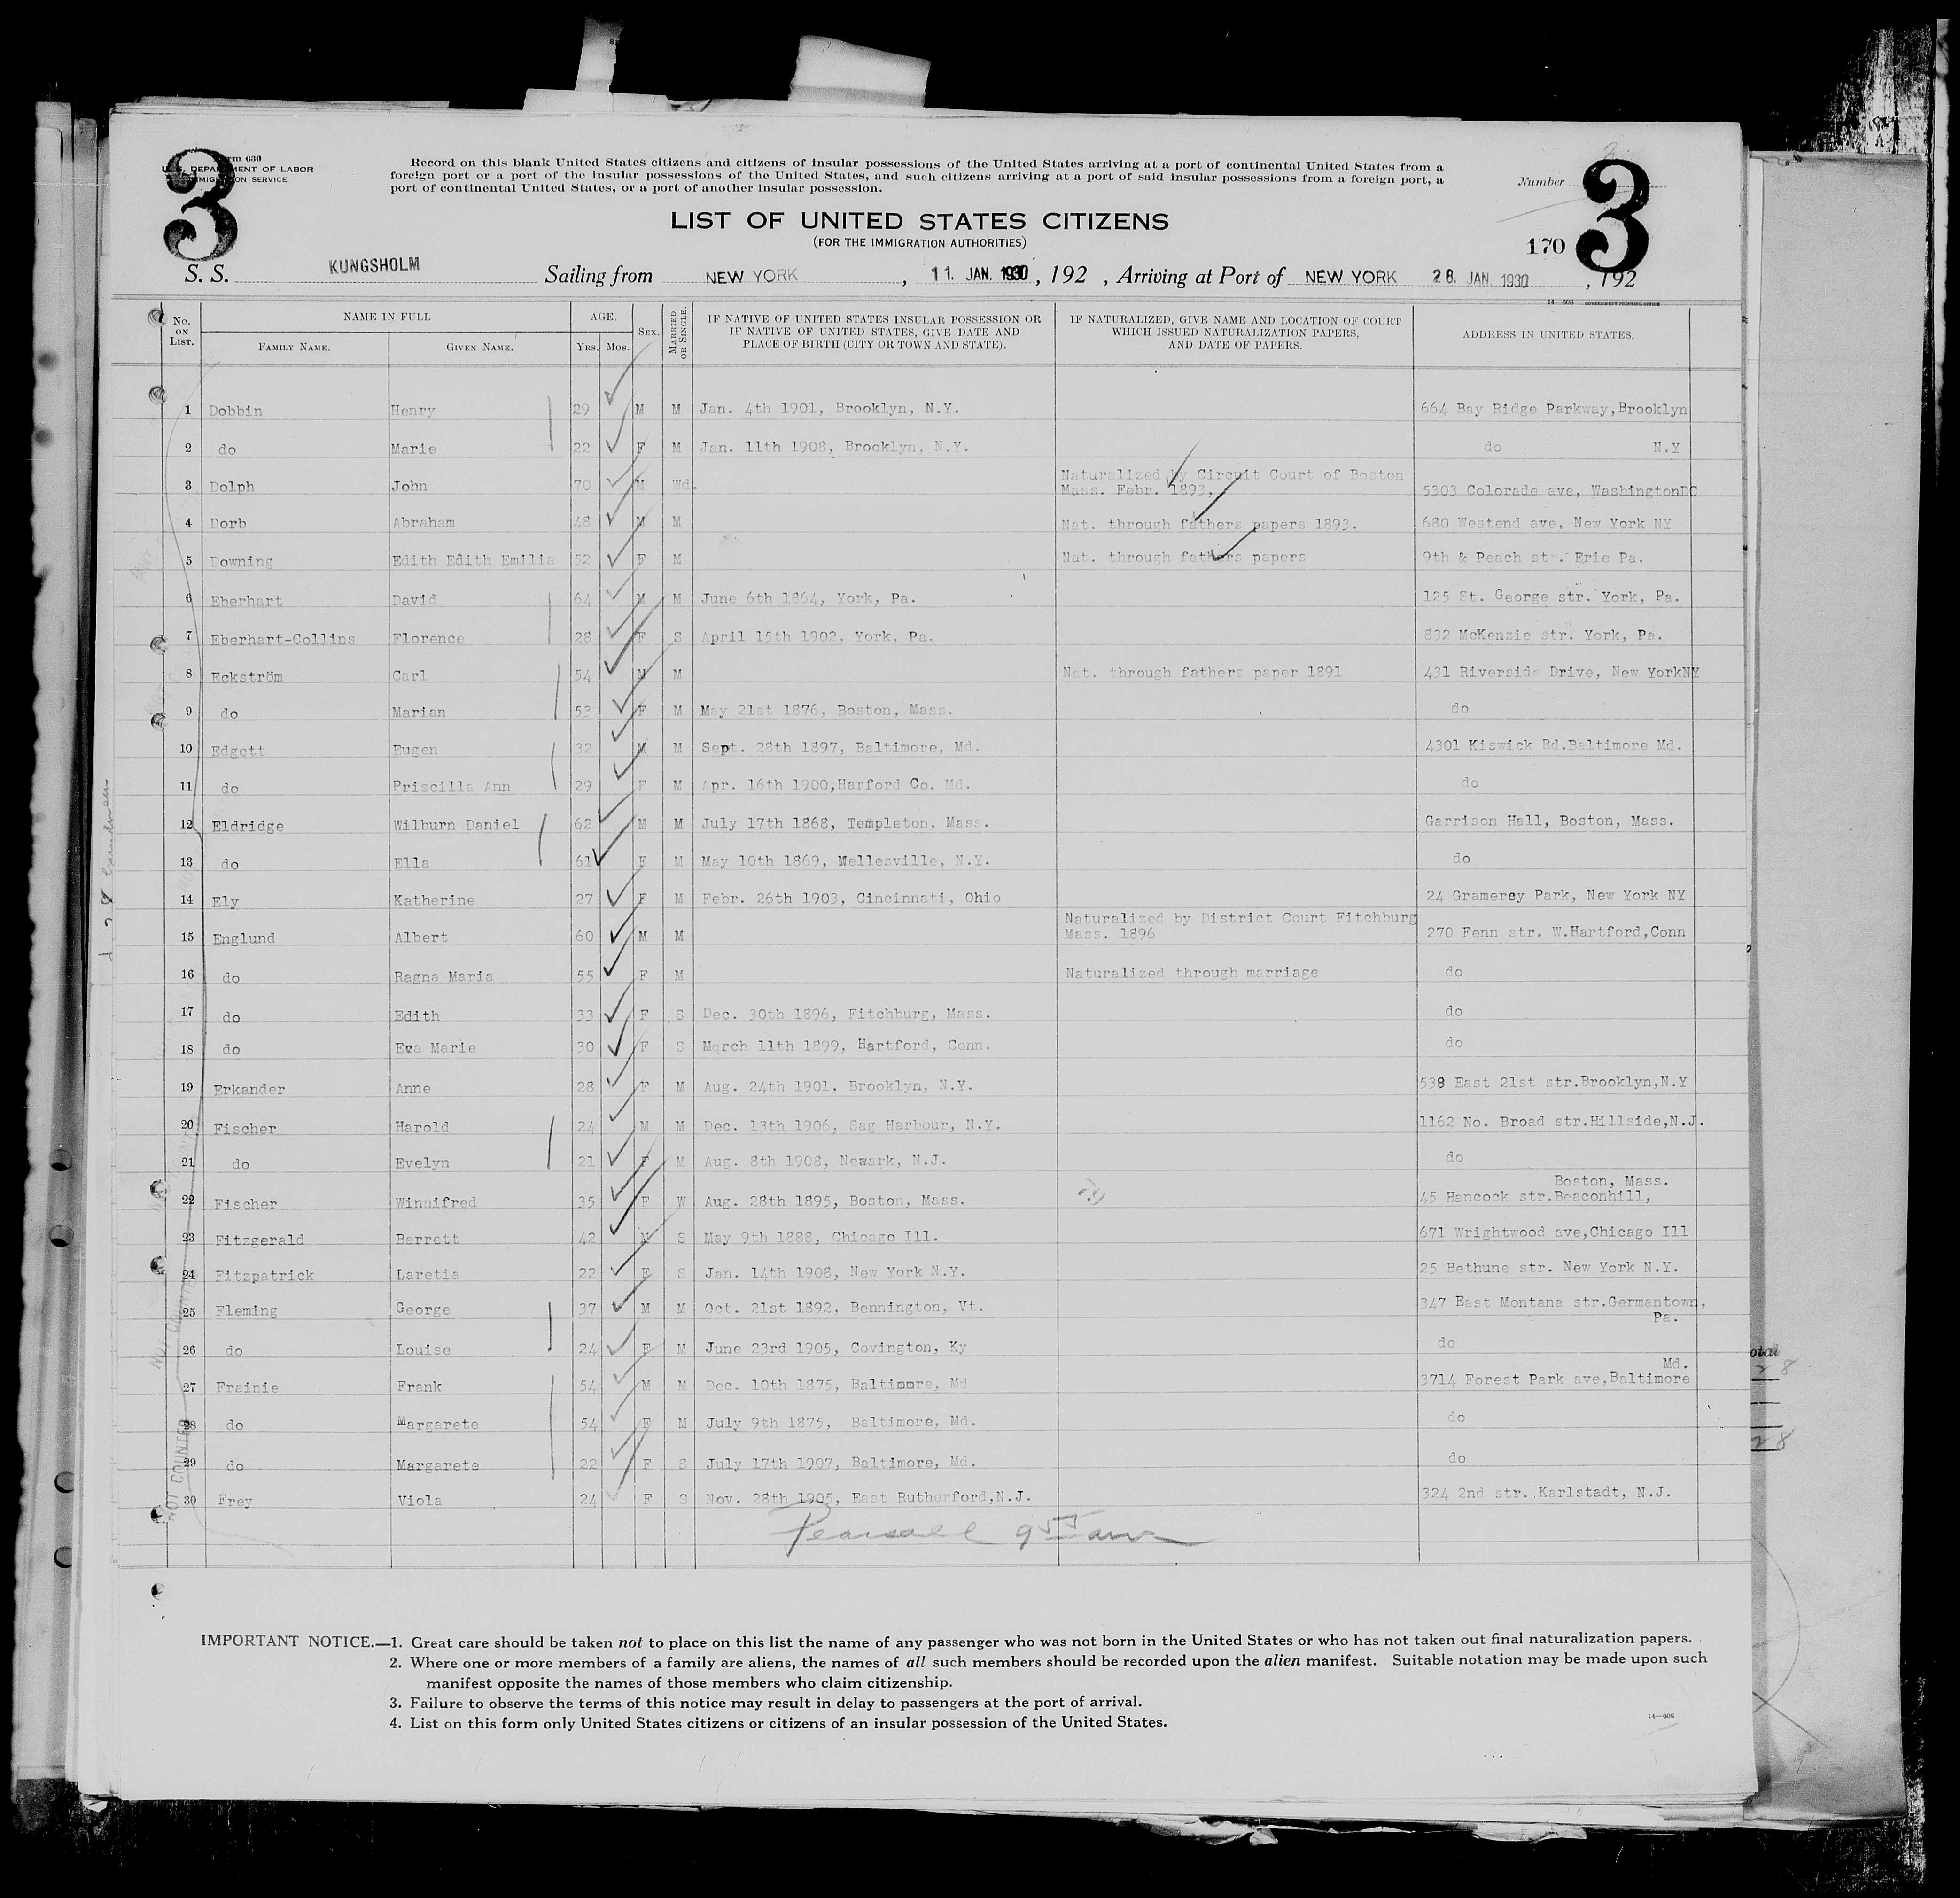 3
Form 630
U. S. DEPARTMENT OF LABOR
IMMIGRATION SERVICE
Record on this blank United States citizens and citizens of insular possessions of the United States arriving at a port of continental United States from a
foreign port or a port of the insular possessions of the United States, and such citizens arriving at a port of said insular possessions from a foreign port, a
port of continental United States, or a port of another insular possession.
Number
3
LIST OF UNITED STATES CITIZENS
(FOR THE IMMIGRATION AUTHORITIES)
170
S. S. KUNGSHOLM Sailing from NEW YORK, 11. JAN. 1930, 192 , Arriving at Port of NEW YORK 28. JAN. 1930, 192
14—608 GOVERNMENT PRINTING OFFICE
No. ON LIST. NAME IN FULL FAMILY NAME. GIVEN NAME. AGE. Yrs. Mos. SEX. MARRIED OR SINGLE. IF NATIVE OF UNITED STATES INSULAR POSSESSION OR IF NATIVE OF UNITED STATES, GIVE DATE AND PLACE OF BIRTH (CITY OR TOWN AND STATE). IF NATURALIZED, GIVE NAME AND LOCATION OF COURT WHICH ISSUED NATURALIZATION PAPERS, AND DATE OF PAPERS. ADDRESS IN UNITED STATES.
1 Dobbin Henry 29 M M Jan. 4th 1901, Brooklyn, N.Y. 664 Bay Ridge Parkway,Brooklyn
2 do Marie 22 F M Jan. 11th 1908, Brooklyn, N.Y. do N.Y
3 Dolph John 70 M Wd. Naturalized by Circuit Court of Boston Mass. Febr. 1893, 5303 Colorade ave, WashingtonDC
4 Dorb Abraham 48 M M Nat. through fathers papers 1893. 680 Westend ave, New York NY
5 Downing Edith Edith Emilia 52 F M Nat. through fathers papers 9th & Peach str. Erie Pa.
6 Eberhart David 64 M M June 6th 1864, York, Pa. 125 St. George str. York, Pa.
7 Eberhart-Collins Florence 28 F S April 15th 1902, York, Pa. 832 McKenzie str. York, Pa.
8 Eckström Carl 54 M M Nat. through fathers paper 1891 431 Riverside Drive, New YorkNY
9 do Marian 53 F M May 21st 1876, Boston, Mass. do
10 Edgett Eugen 32 M M Sept. 28th 1897, Baltimore, Md. 4301 Kiswick Rd.Baltimore Md.
11 do Priscilla Ann 29 F M Apr. 16th 1900,Harford Co. Md. do
12 Eldridge Wilburn Daniel 62 M M July 17th 1868, Templeton, Mass. Garrison Hall, Boston, Mass.
13 do Ella 61 F M May 10th 1869, Mellesville, N.Y. do
14 Ely Katherine 27 F M Febr. 26th 1903, Cincinnati, Ohio 24 Gramercy Park, New York NY
15 Englund Albert 60 M M Naturalized by District Court Fitchburg Mass. 1896 270 Fenn str. W.Hartford,Conn
16 do Ragna Maria 55 F M Naturalized through marriage do
17 do Edith 33 F S Dec. 30th 1896, Fitchburg, Mass. do
18 do Eva Marie 30 F S Mqrch 11th 1899, Hartford, Conn. do
19 Erkander Anne 28 F M Aug. 24th 1901, Brooklyn, N.Y. 538 East 21st str.Brooklyn,N.Y
20 Fischer Harold 24 M M Dec. 13th 1906, Sag Harbour, N.Y. 1162 No. Broad str.Hillside,N.J.
21 do Evelyn 21 F M Aug. 8th 1908, Newark, N.J. do
22 Fischer Winnifred 35 F W Aug. 28th 1895, Boston, Mass. 45 Hancock str.Beaconhill, Boston, Mass.
23 Fitzgerald Barrett 42 M S May 9th 1888, Chicago Ill. 671 Wrightwood ave,Chicago Ill
24 Fitzpatrick Laretia 22 F S Jan. 14th 1908, New York N.Y. 25 Bethune str. New York N.Y.
25 Fleming George 37 M M Oct. 21st 1892, Bennington, Vt. 347 East Montana str.Germantown, Pa.
26 do Louise 24 F M June 23rd 1905, Covington, Ky do
27 Frainie Frank 54 M M Dec. 10th 1875, Baltimore, Md 3714 Forest Park ave,Baltimore Md.
28 do Margarete 54 F M July 9th 1875, Baltimore, Md. do
29 do Margarete 22 F S July 17th 1907, Baltimore, Md. do
30 Frey Viola 24 F S Nov. 28th 1905, East Rutherford,N.J. 324 2nd str. Karlstadt, N.J.
NOT COUNTED
Pearsall
IMPORTANT NOTICE.—1. Great care should be taken not to place on this list the name of any passenger who was not born in the United States or who has not taken out final naturalization papers.
2. Where one or more members of a family are aliens, the names of all such members should be recorded upon the alien manifest. Suitable notation may be made upon such
manifest opposite the names of those members who claim citizenship.
3. Failure to observe the terms of this notice may result in delay to passengers at the port of arrival.
4. List on this form only United States citizens or citizens of an insular possession of the United States.
14—608